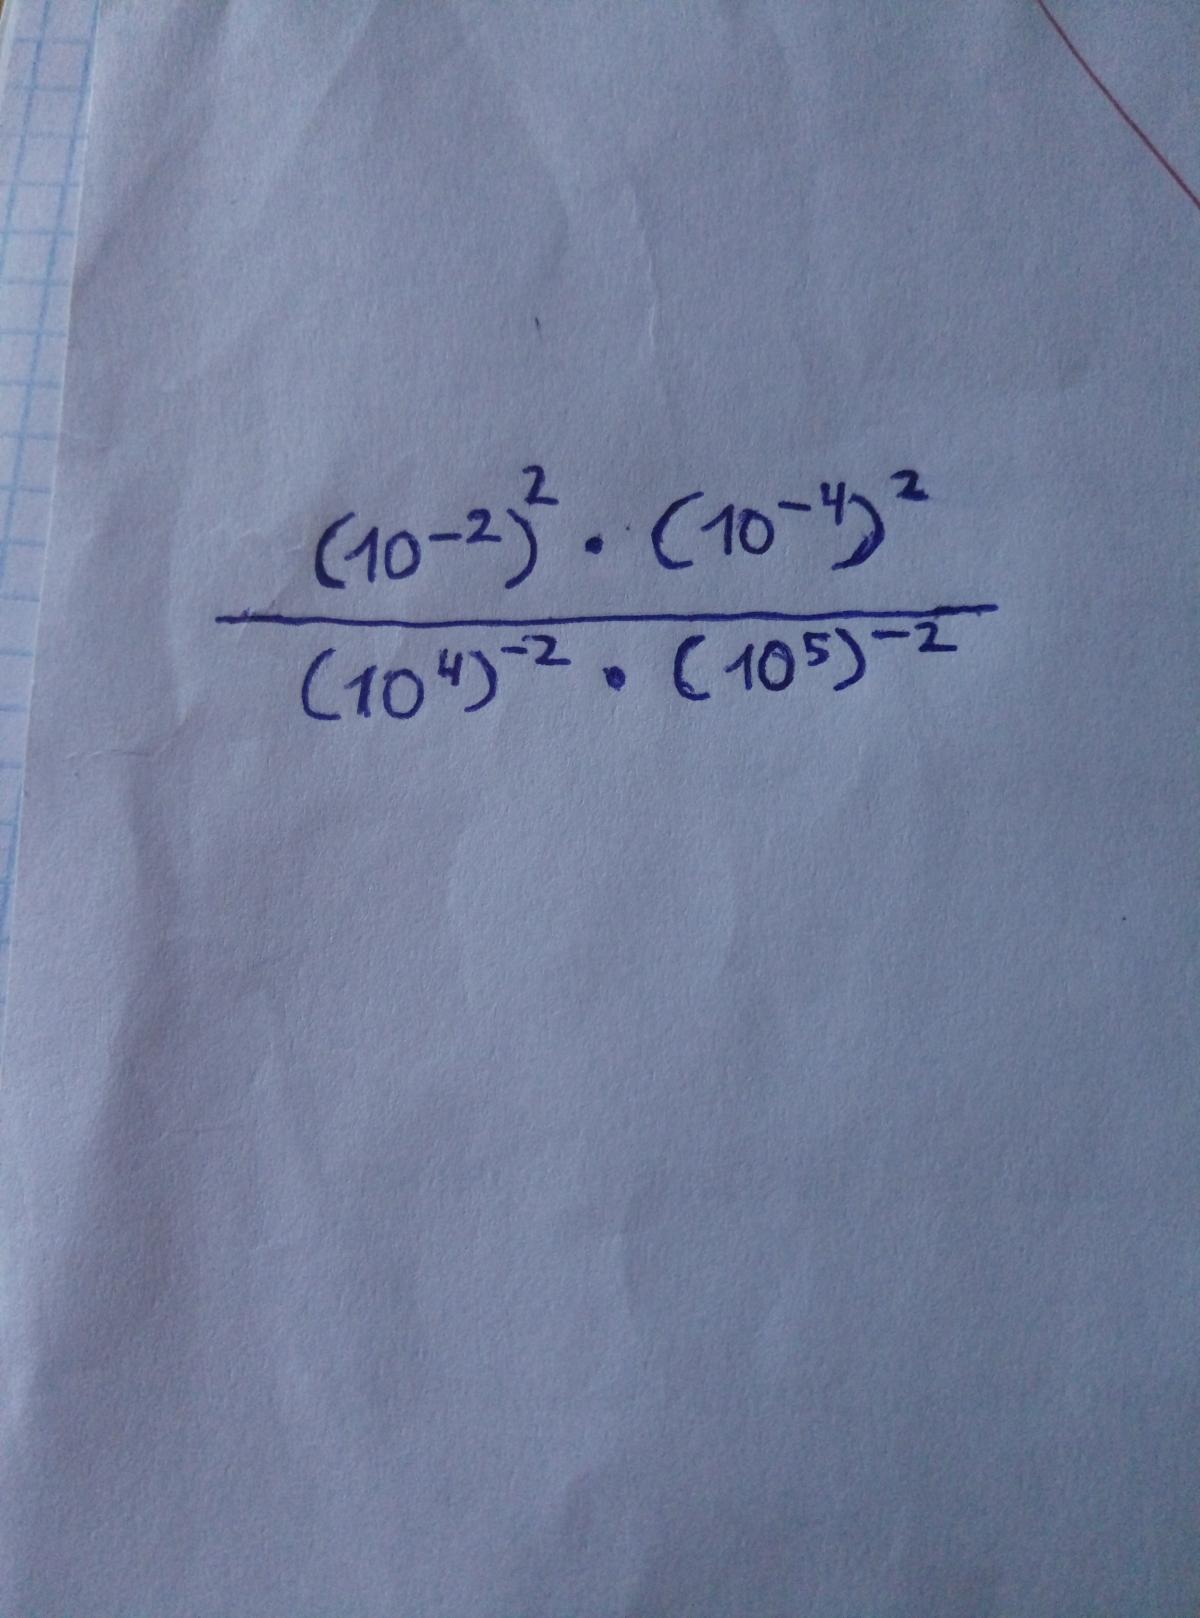 (10⁻²)² · (10⁻⁴)²
(10⁴)⁻² · (10⁵)⁻²